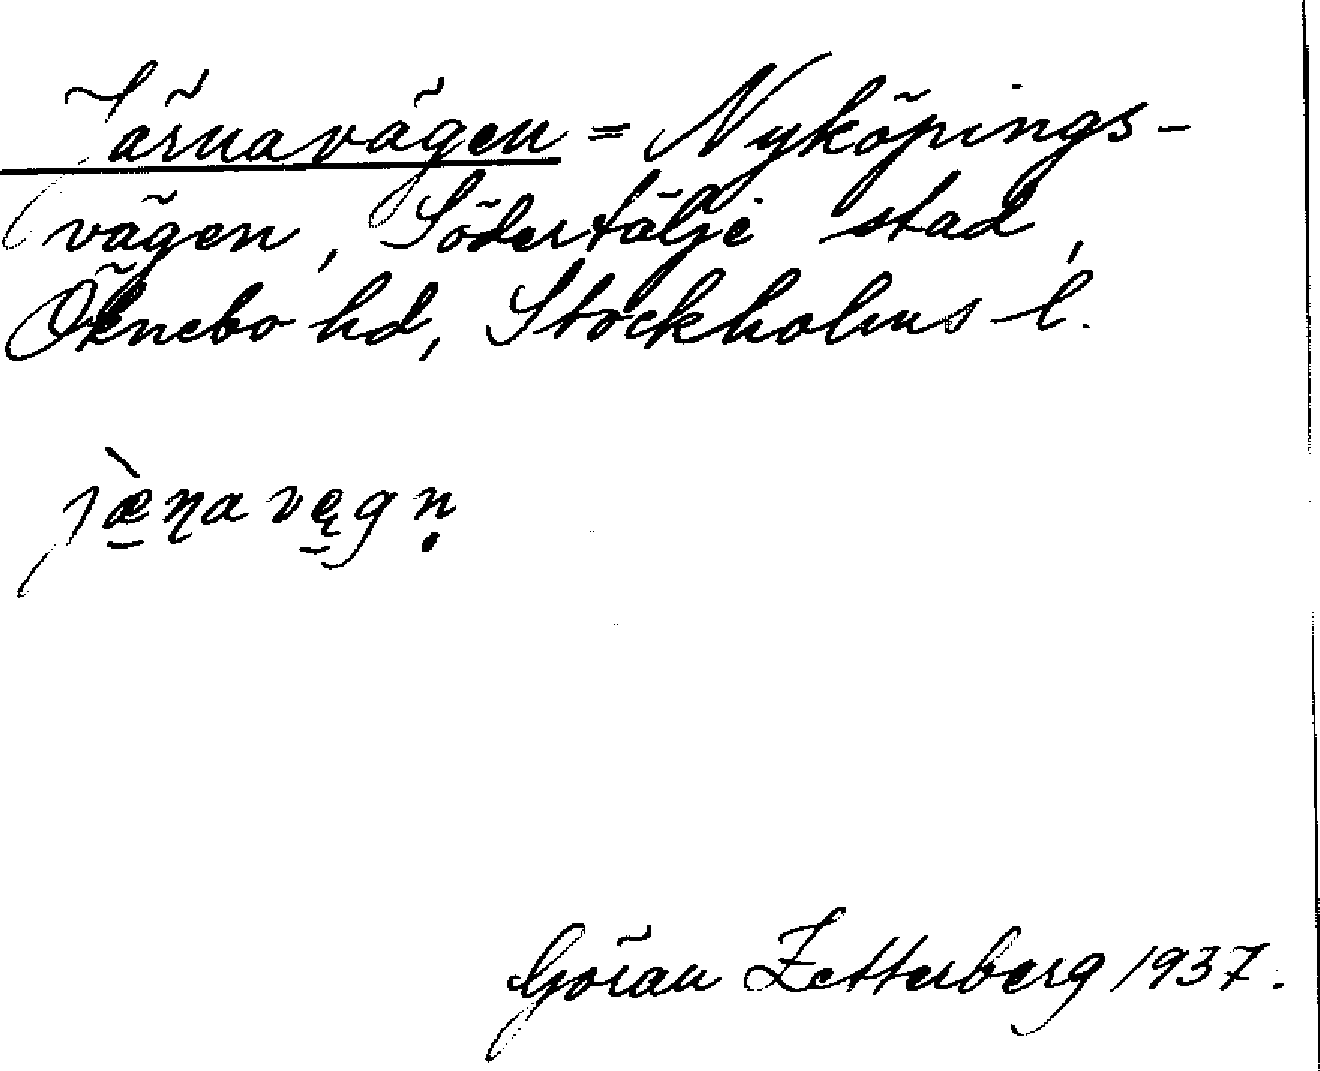 Järnavägen = Nyköpings-
vägen, Södertälje stad,
Öknebo hd, Stockholms l.
jæ̠̀ɳa vę̠gn̥
Göran Zetterberg 1937.